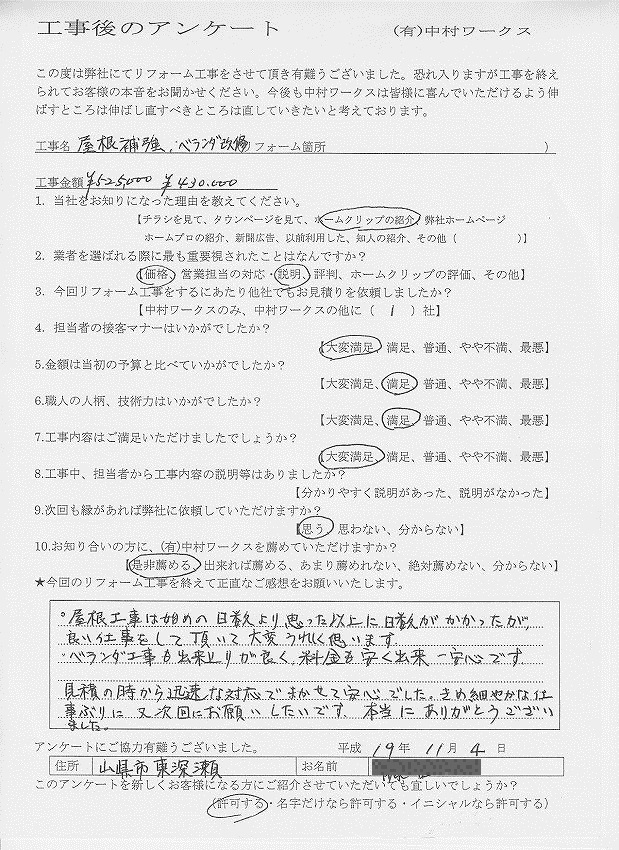 工事後のアンケート (有)中村ワークス
この度は弊社にてリフォーム工事をさせて頂き有難うございました。恐れ入りますが工事を終え
られてお客様の本音をお聞かせください。今後も中村ワークスは皆様に喜んでいただけるよう伸
ばすところは伸ばし直すべきところは直していきたいと考えております。
工事名 屋根補強、ベランダ改修 フォーム箇所 )
工事金額 ¥525,000 ¥430,000
1. 当社をお知りになった理由を教えてください。
【チラシを見て、タウンページを見て、ホームクリップの紹介、弊社ホームページ
ホームプロの紹介、新聞広告、以前利用した、知人の紹介、その他（ )】
2. 業者を選ばれる際に最も重要視されたことはなんですか？
【価格、営業担当の対応・説明、評判、ホームクリップの評価、その他】
3. 今回リフォーム工事をするにあたり他社でもお見積りを依頼しましたか？
【中村ワークスのみ、中村ワークスの他に（ 1 ）社】
4. 担当者の接客マナーはいかがでしたか？
【大変満足、満足、普通、やや不満、最悪】
5.金額は当初の予算と比べていかがでしたか？
【大変満足、満足、普通、やや不満、最悪】
6.職人の人柄、技術力はいかがでしたか？
【大変満足、満足、普通、やや不満、最悪】
7.工事内容はご満足いただけましたでしょうか？
【大変満足、満足、普通、やや不満、最悪】
8.工事中、担当者から工事内容の説明等はありましたか？
【分かりやすく説明があった、説明がなかった】
9.次回も縁があれば弊社に依頼していただけますか？
【思う、思わない、分からない】
10.お知り合いの方に、(有)中村ワークスを薦めていただけますか？
【是非薦める、出来れば薦める、あまり薦めれない、絶対薦めない、分からない】
★今回のリフォーム工事を終えて正直なご感想をお願いいたします。
・屋根工事は始めの日数より思った以上に日数がかかったが、
良い仕事をして頂いて大変うれしく思います。
・ベランダ工事も出来上りが良く、料金も安く出来一安心です。
見積の時から迅速な対応でまかせて安心でした。きめ細やかな仕
事ぶりに又次回にお願いしたいです。本当にありがとうござい
ました。
アンケートにご協力有難うございました。 平成 19 年 11 月 4 日
住所 山県市東深瀬 お名前
このアンケートを新しくお客様になる方にご紹介させていただいても宜しいでしょうか？
(許可する・名字だけなら許可する・イニシャルなら許可する）